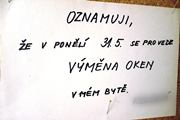 OZNAMUJI,
ŽE V PONĚLÍ 31.5. SE PROVEDE
VÝMĚNA OKEN
V MÉM BYTĚ.